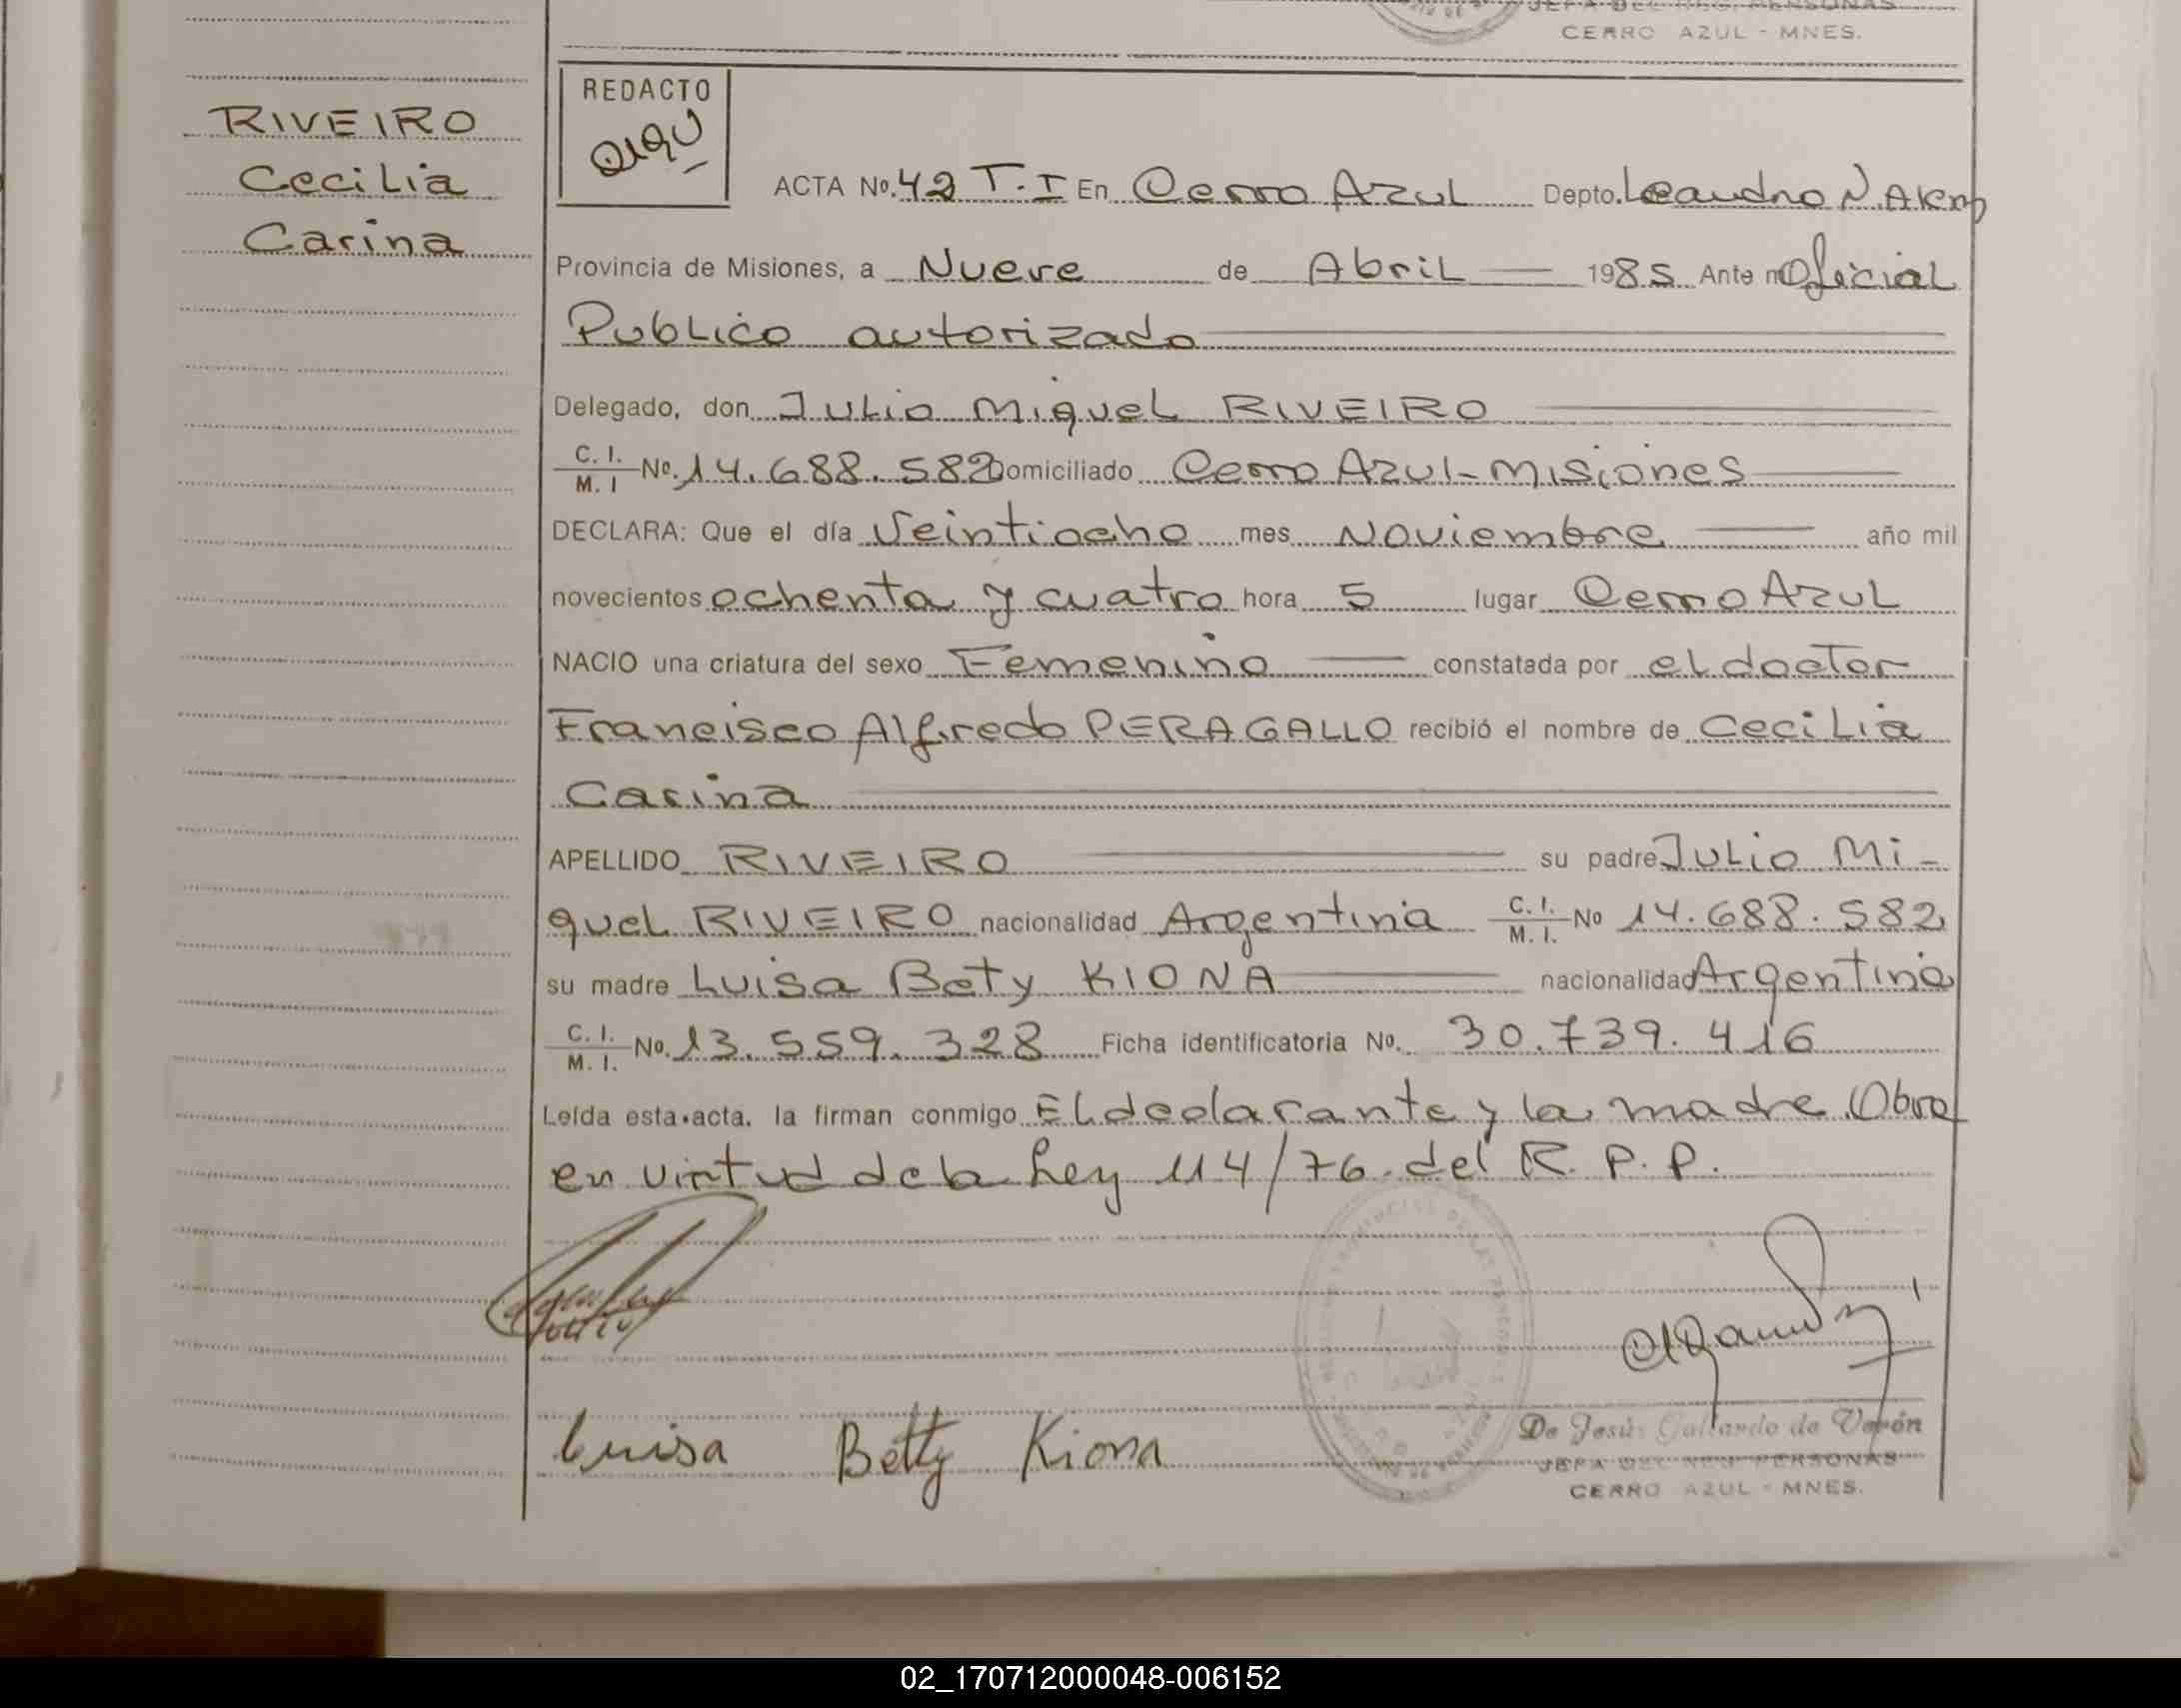 JEFA DEL REG. PERSONAS
CERRO AZUL - MNES.
RIVEIRO
Cecilia
Carina
REDACTO
ACTA No. 42 T.I En Cerro Azul Depto. Leandro N. Alem
Provincia de Misiones, a Nueve de Abril 1985 Ante m Oficial
Publico autorizado
Delegado, don Julio Miguel RIVEIRO
C. I. M. I No. 14.688.582 Domiciliado Cerro Azul - Misiones
DECLARA: Que el día Veintiocho mes Noviembre año mil
novecientos ochenta y cuatro hora 5 lugar Cerro Azul
NACIO una criatura del sexo Femenino constatada por el doctor
Francisco Alfredo PERAGALLO recibió el nombre de Cecilia
Carina
APELLIDO RIVEIRO su padre Julio Mi-
guel RIVEIRO nacionalidad Argentina C. I. M. I. No 14.688.582
su madre Luisa Bety KIONA nacionalidad Argentina
C. I. M. I. No. 13.559.328 Ficha identificatoria No. 30.739.416
Leída esta acta, la firman conmigo El declarante y la madre. Obro
en virtud de la Ley 114/76. del R. P. P.
Luisa Betty Kiona
De Jesús Gallardo de Verón
JEFA DEL REG. PERSONAS
CERRO AZUL - MNES.
02_170712000048-006152